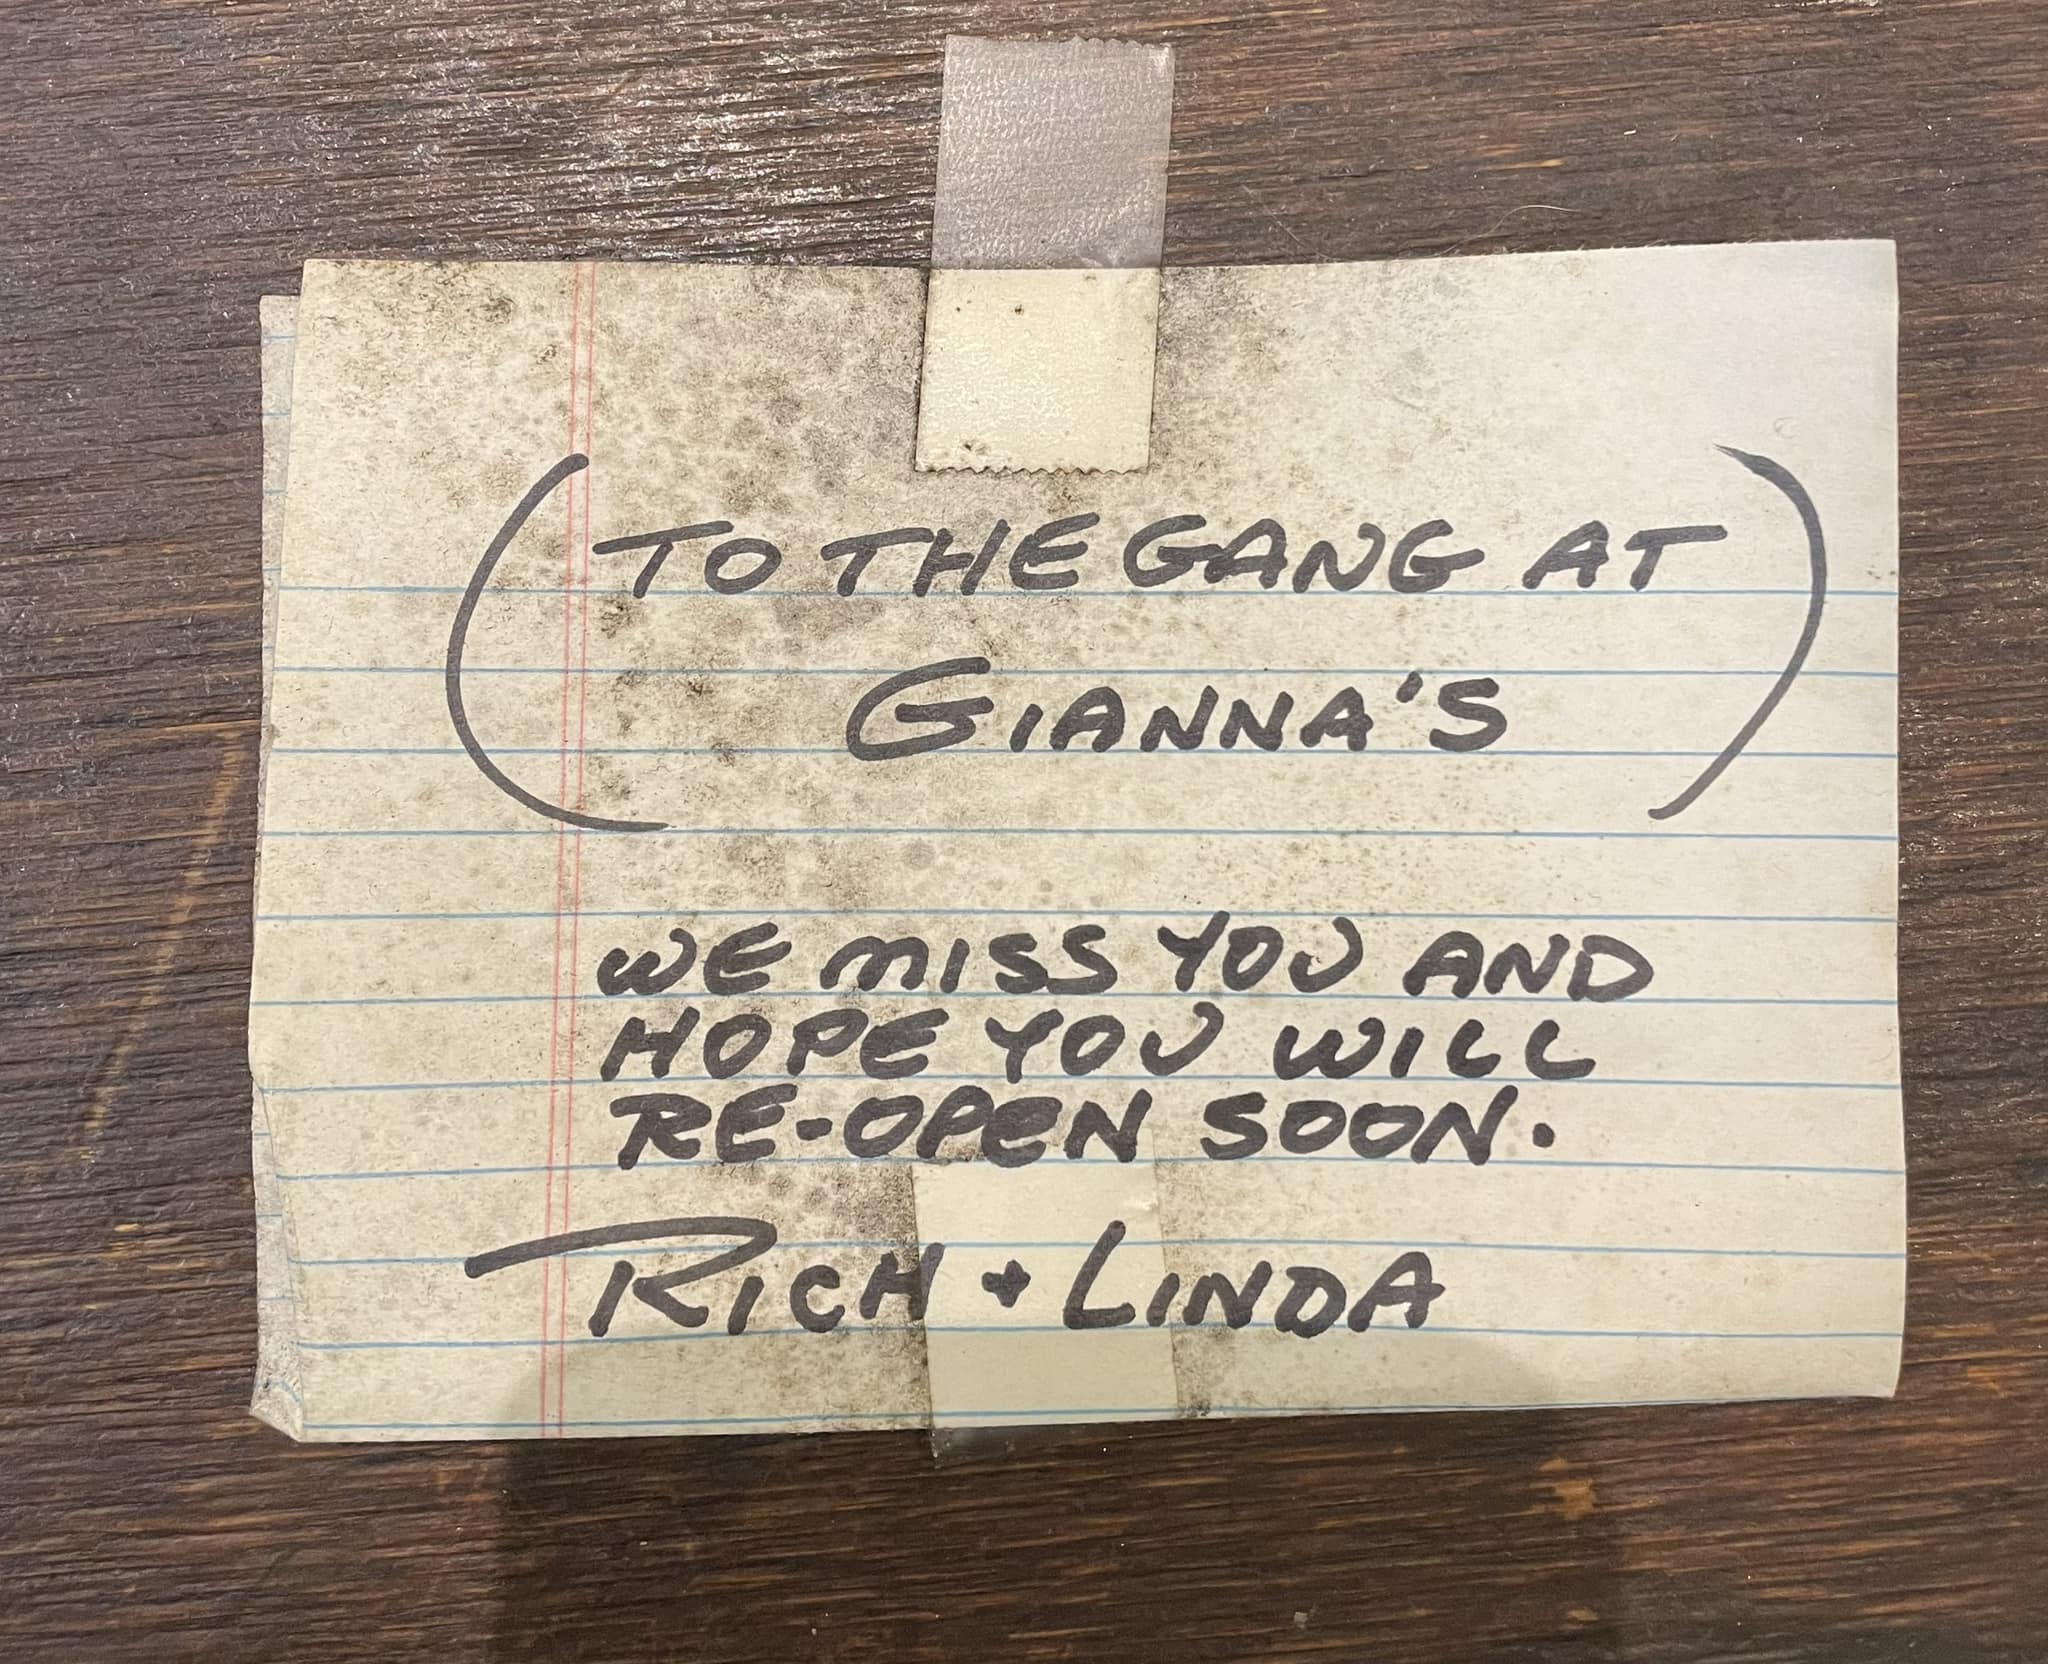 (TO THE GANG AT
GIANNA'S)
WE MISS YOU AND
HOPE YOU WILL
RE-OPEN SOON.
RICH + LINDA